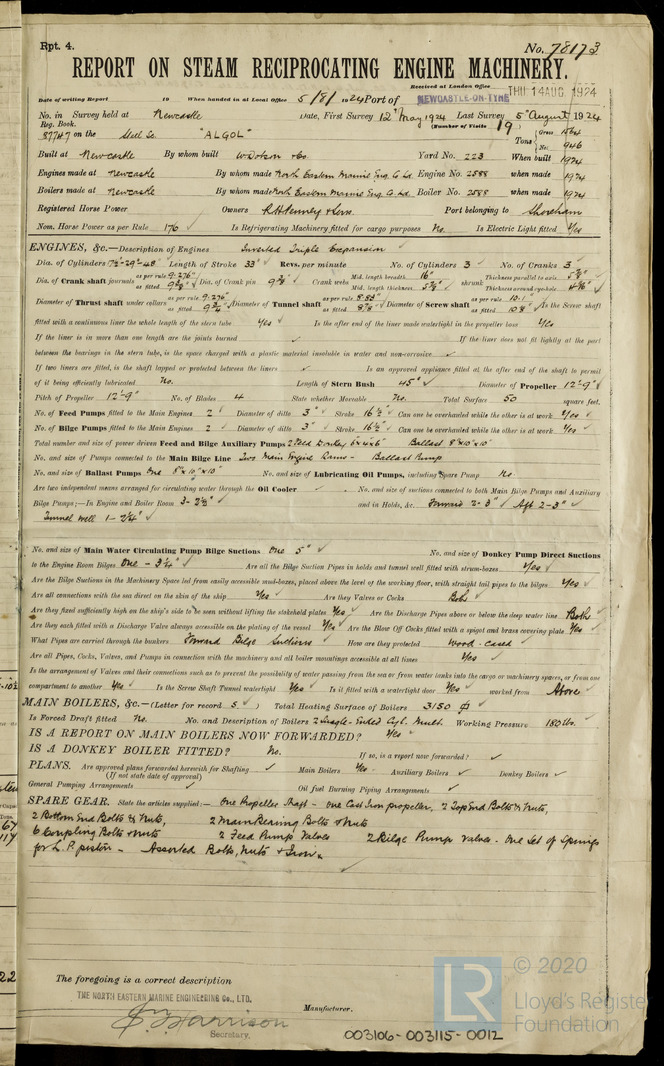 Rpt. 4.
No. 78173
REPORT ON STEAM RECIPROCATING ENGINE MACHINERY.
Received at London Office THU 14 AUG. 1924
Date of writing Report 19 When handed in at Local Office 5/8/1924 Port of NEWCASTLE-ON-TYNE
No. in Survey held at Newcastle Date, First Survey 12th May 1924 Last Survey 5th August 1924
Reg. Book. (Number of Visits 19)
87747 on the Steel Sc. "ALGOL" Tons Gross 1564 Net 946
Built at Newcastle By whom built W. Dobson & Co. Yard No. 223 When built 1924
Engines made at Newcastle By whom made North Eastern Marine Eng. Co Ld. Engine No. 2588 when made 1924
Boilers made at Newcastle By whom made North Eastern Marine Eng. Co Ld. Boiler No. 2588 when made 1924
Registered Horse Power Owners R. H. Penney & Sons. Port belonging to Shoreham
Nom. Horse Power as per Rule 176 Is Refrigerating Machinery fitted for cargo purposes No. Is Electric Light fitted Yes
ENGINES, &c.—Description of Engines Inverted Triple Expansion
Dia. of Cylinders 17½-29-48" Length of Stroke 33" Revs. per minute No. of Cylinders 3 No. of Cranks 3
Dia. of Crank shaft journals as per rule 9.276" as fitted Dia. of Crank pin Crank webs Mid. length breadth 16" Mid. length thickness shrunk Thickness parallel to axis Thickness around eye-hole
Diameter of Thrust shaft under collars as per rule 9.276" as fitted Diameter of Tunnel shaft as per rule 8.83" as fitted 8⅞" Diameter of Screw shaft as per rule 10.1" as fitted Is the Screw shaft
fitted with a continuous liner the whole length of the stern tube Yes Is the after end of the liner made watertight in the propeller boss Yes
If the liner is in more than one length are the joints burned If the liner does not fit tightly at the part
between the bearings in the stern tube, is the space charged with a plastic material insoluble in water and non-corrosive
If two liners are fitted, is the shaft lapped or protected between the liners Is an approved appliance fitted at the after end of the shaft to permit
of it being efficiently lubricated. No. Length of Stern Bush 45" Diameter of Propeller 12'-9"
Pitch of Propeller 12'-9" No. of Blades 4 State whether Moveable No. Total Surface 50 square feet.
No. of Feed Pumps fitted to the Main Engines 2 Diameter of ditto 3" Stroke 16½" Can one be overhauled while the other is at work Yes
No. of Bilge Pumps fitted to the Main Engines 2 Diameter of ditto 3" Stroke 16½" Can one be overhauled while the other is at work Yes
Total number and size of power driven Feed and Bilge Auxiliary Pumps 2 Feed Donkey 6"x4"x6" Ballast 8"x10"x10"
No. and size of Pumps connected to the Main Bilge Line Two Main Engine Rams - Ballast Pump
No. and size of Ballast Pumps One 8"x10"x10" No. and size of Lubricating Oil Pumps, including Spare Pump No
Are two independent means arranged for circulating water through the Oil Cooler No. and size of suctions connected to both Main Bilge Pumps and Auxiliary
Bilge Pumps;—In Engine and Boiler Room 3-2½" and in Holds, &c. Forward 2-3" Aft 2-3"
Tunnel Well 1-2¼"
No. and size of Main Water Circulating Pump Bilge Suctions One 5" No. and size of Donkey Pump Direct Suctions
to the Engine Room Bilges One - 3¼" Are all the Bilge Suction Pipes in holds and tunnel well fitted with strum-boxes Yes
Are the Bilge Suctions in the Machinery Space led from easily accessible mud-boxes, placed above the level of the working floor, with straight tail pipes to the bilges Yes
Are all connections with the sea direct on the skin of the ship Yes Are they Valves or Cocks Both
Are they fixed sufficiently high on the ship's side to be seen without lifting the stokehold plates Yes Are the Discharge Pipes above or below the deep water line Both
Are they each fitted with a Discharge Valve always accessible on the plating of the vessel Yes Are the Blow Off Cocks fitted with a spigot and brass covering plate Yes
What Pipes are carried through the bunkers Forward Bilge Suctions How are they protected Wood-cased
Are all Pipes, Cocks, Valves, and Pumps in connection with the machinery and all boiler mountings accessible at all times Yes
Is the arrangement of Valves and their connections such as to prevent the possibility of water passing from the sea or from water tanks into the cargo or machinery spaces, or from one
compartment to another Yes Is the Screw Shaft Tunnel watertight Yes Is it fitted with a watertight door Yes worked from Above
MAIN BOILERS, &c.—(Letter for record S.) Total Heating Surface of Boilers 3150
Is Forced Draft fitted No. No. and Description of Boilers 2 Single-Ended Cyl. Mult. Working Pressure 180 lbs.
IS A REPORT ON MAIN BOILERS NOW FORWARDED? Yes
IS A DONKEY BOILER FITTED? No. If so, is a report now forwarded?
PLANS. Are approved plans forwarded herewith for Shafting Main Boilers Yes Auxiliary Boilers Donkey Boilers
(If not state date of approval)
General Pumping Arrangements Oil fuel Burning Piping Arrangements
SPARE GEAR. State the articles supplied:— One Propeller Shaft - One Cast Iron propeller, 2 Top End Bolts & Nuts,
2 Bottom End Bolts & Nuts, 2 Main Bearing Bolts & Nuts
6 Coupling Bolts & Nuts 2 Feed Pump Valves 2 Bilge Pump Valves - One Set of Springs
for L.P. piston - Assorted Bolts, Nuts & Iron.
The foregoing is a correct description
THE NORTH EASTERN MARINE ENGINEERING Co., LTD.
Harrison Manufacturer.
Secretary.
003106-003115-0012
LR © 2020
Lloyd's Register
Foundation